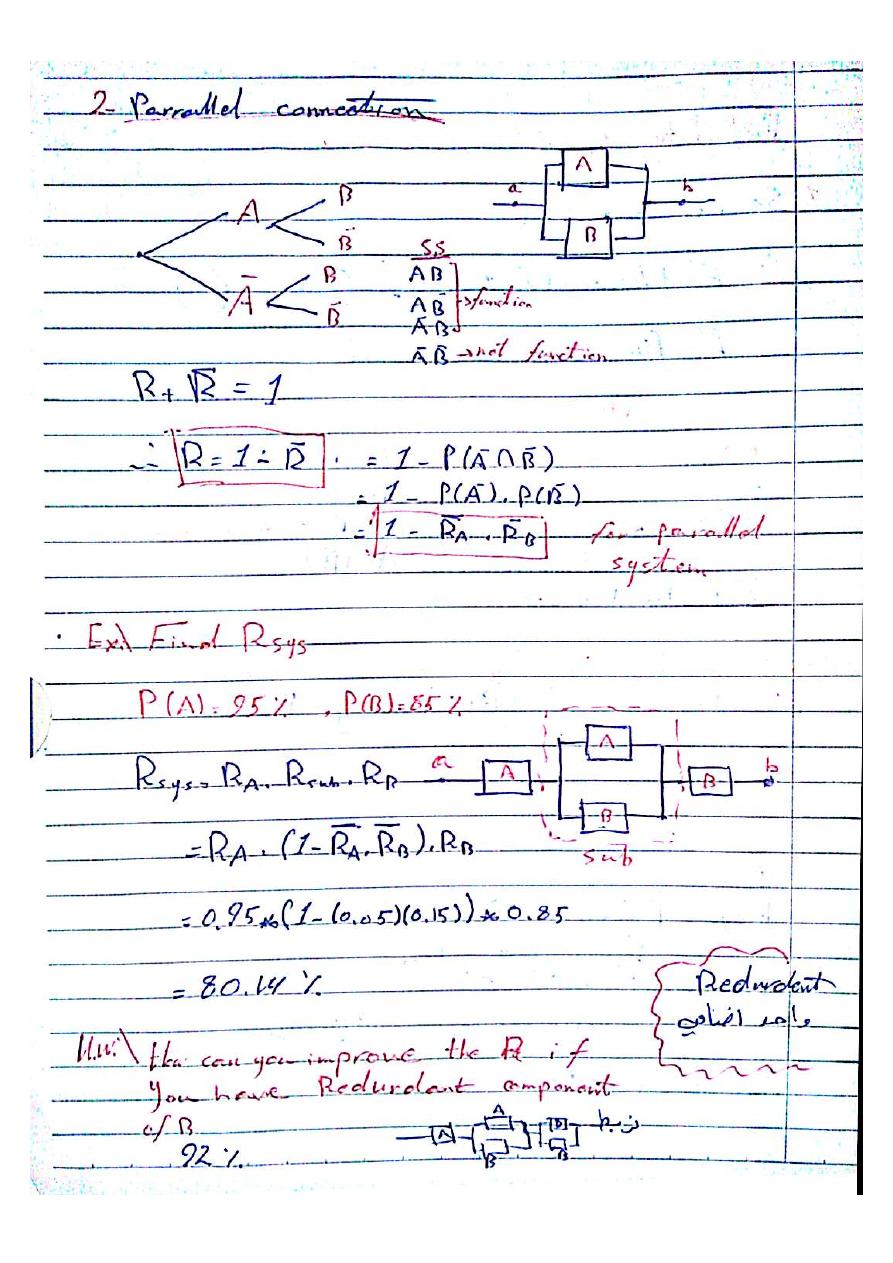 2- Parralled connection
A
B
B̄
Ā
B
B̄
a
A
B
b
SS
AB
AB̄ → function
ĀB
ĀB̄ → not function
R + R̄ = 1
∴ R = 1 - R̄ = 1 - P(Ā∩B̄)
= 1 - P(Ā). P(B̄)
= 1 - R̄A . R̄B for parallel
system
Ex\ Find Rsys
P(A) = 95% , P(B) = 85%
Rsys = RA . Rsub . RB
a
A
A
B
B
b
sub
= RA . (1 - R̄A . R̄B) . RB
= 0.95 * (1 - (0.05)(0.15)) * 0.85
= 80.14 %
Redurdent
واحد اضافي
H.w:\ How can you improve the R if
you have Redurdant component
of B
92 %
A
A
B
B
B
نربط